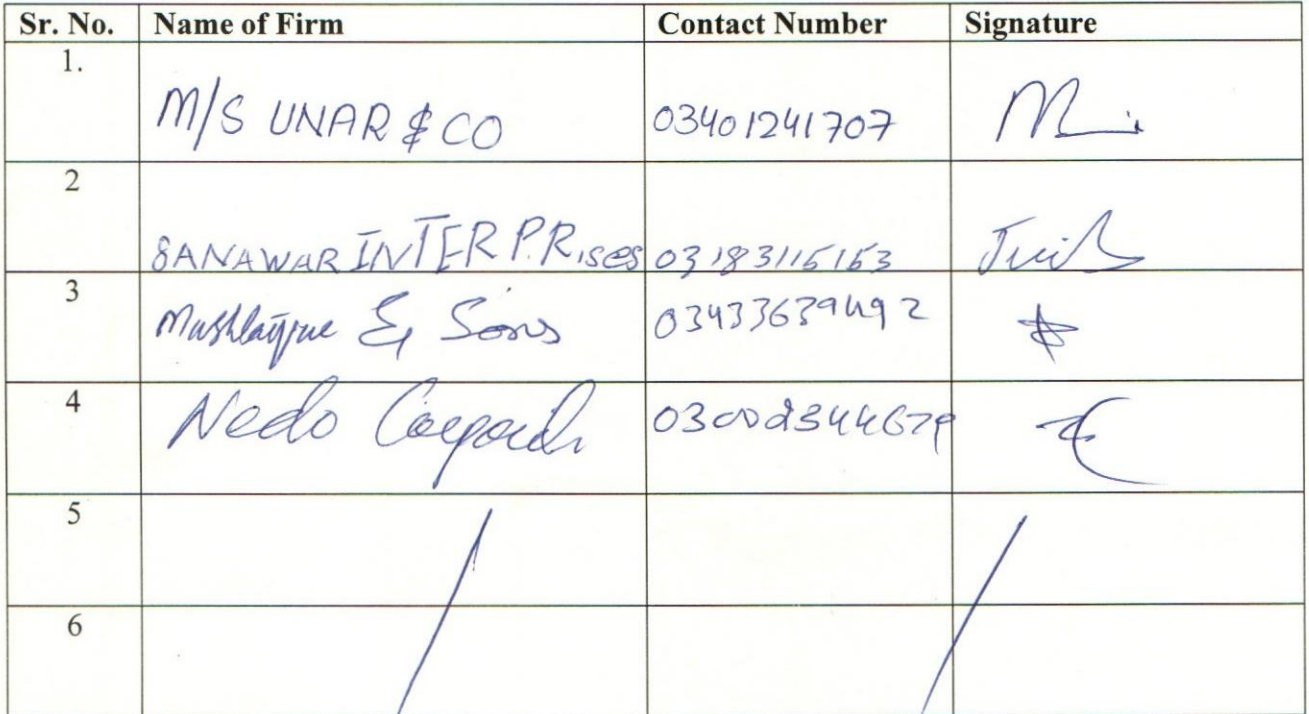 Sr. No. Name of Firm Contact Number Signature
1. M/S UNAR & CO 03401241707
2 SANAWAR INTERPRises 03183115153
3 Mushtaque & Sons 03433639492
4 Nedo
5
6